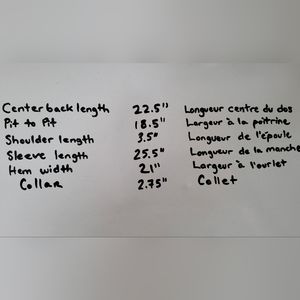 Center back length 22.5" Longueur centre du dos
Pit to Pit 18.5" Largeur à la poitrine
Shoulder length 3.5" Longueur de l'épaule
Sleeve length 25.5" Longueur de la manche
Hem width 21" Largeur à l'ourlet
Collar 2.75" Collet